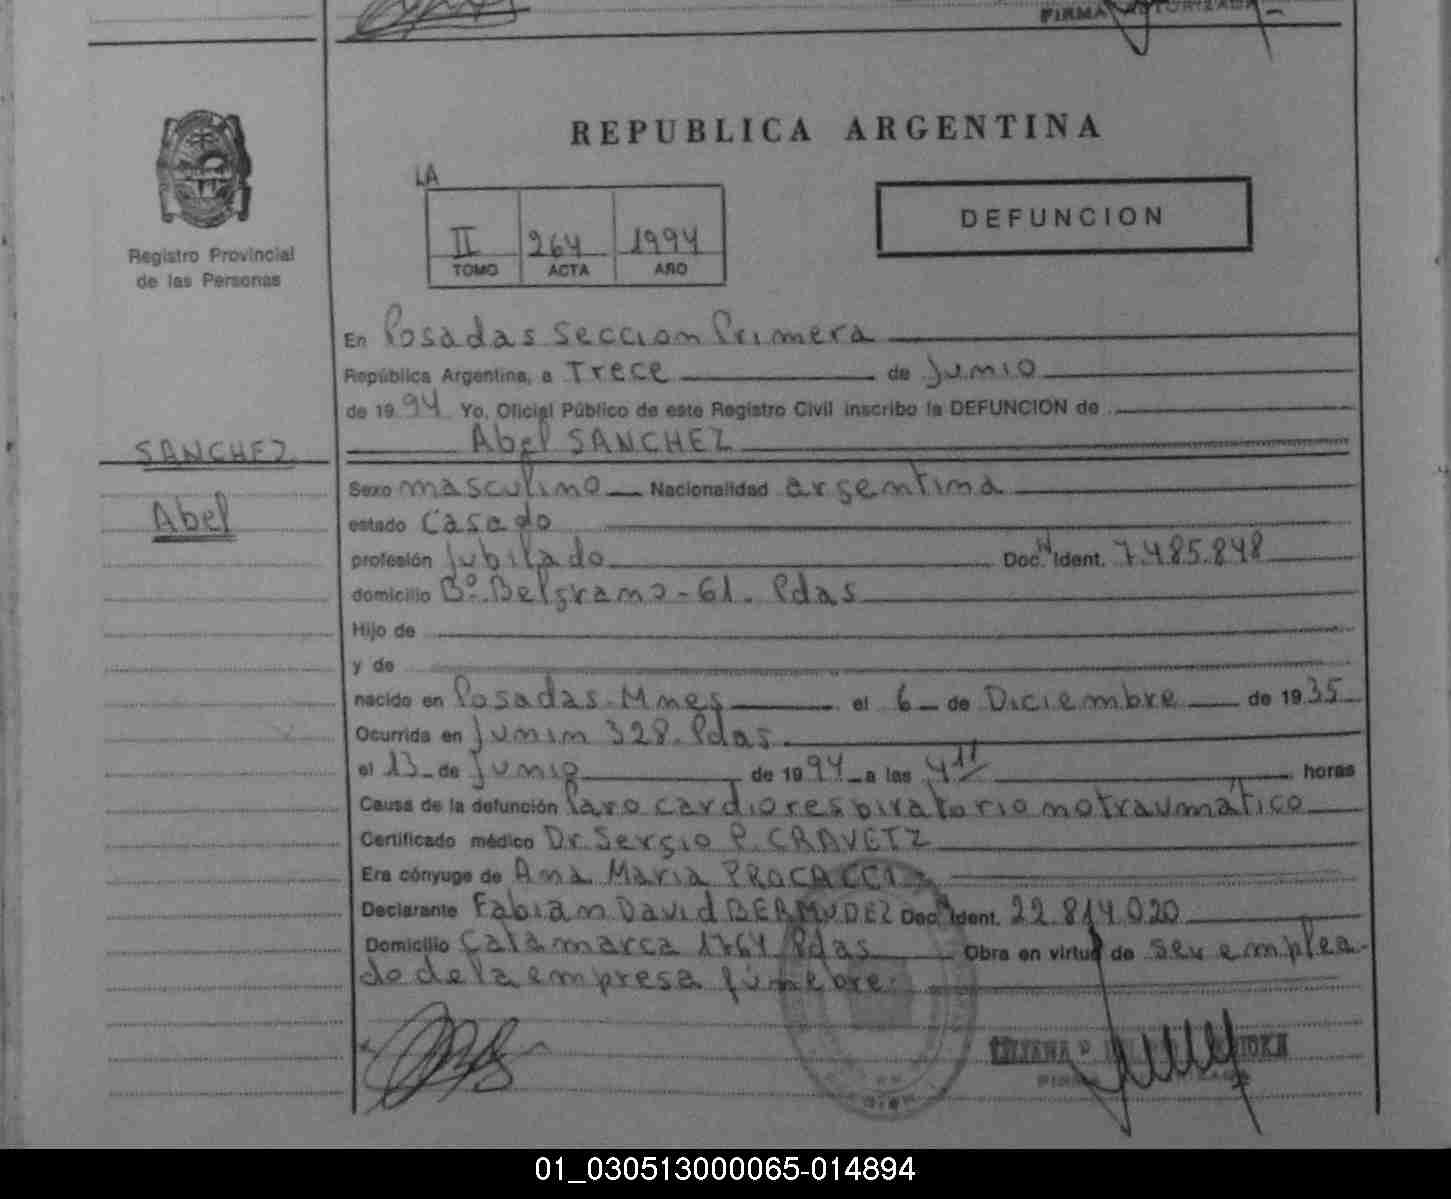 FIRMA AUTORIZADA
REPUBLICA ARGENTINA
LA
II 264 1994
TOMO ACTA AÑO
DEFUNCION
Registro Provincial
de las Personas
En Posadas Seccion Primera
República Argentina, a Trece de Junio
de 1994 Yo, Oficial Público de este Registro Civil inscribo la DEFUNCION de
Abel SANCHEZ
SANCHEZ
Abel
Sexo masculino Nacionalidad argentina
estado Casado
profesión Jubilado Doc. Ident. 7.485.848
domicilio Bº. Belgrano - 61. Pdas
Hijo de
y de
nacido en Posadas. Mnes el 6 de Diciembre de 1935
Ocurrida en Junin 328. Pdas
el 13 de Junio de 1994 a las 4 horas
Causa de la defunción Paro cardiorespiratorio no traumático
Certificado médico Dr. Sergio P. CRAVETZ
Era cónyuge de Ana Maria PROCACCI
Declarante Fabian David BERMUDEZ Doc. Ident. 22.814.020
Domicilio Catamarca 1764 Pdas Obra en virtud de ser emplea-
do de la empresa fúnebre.
LILIANA
01_030513000065-014894